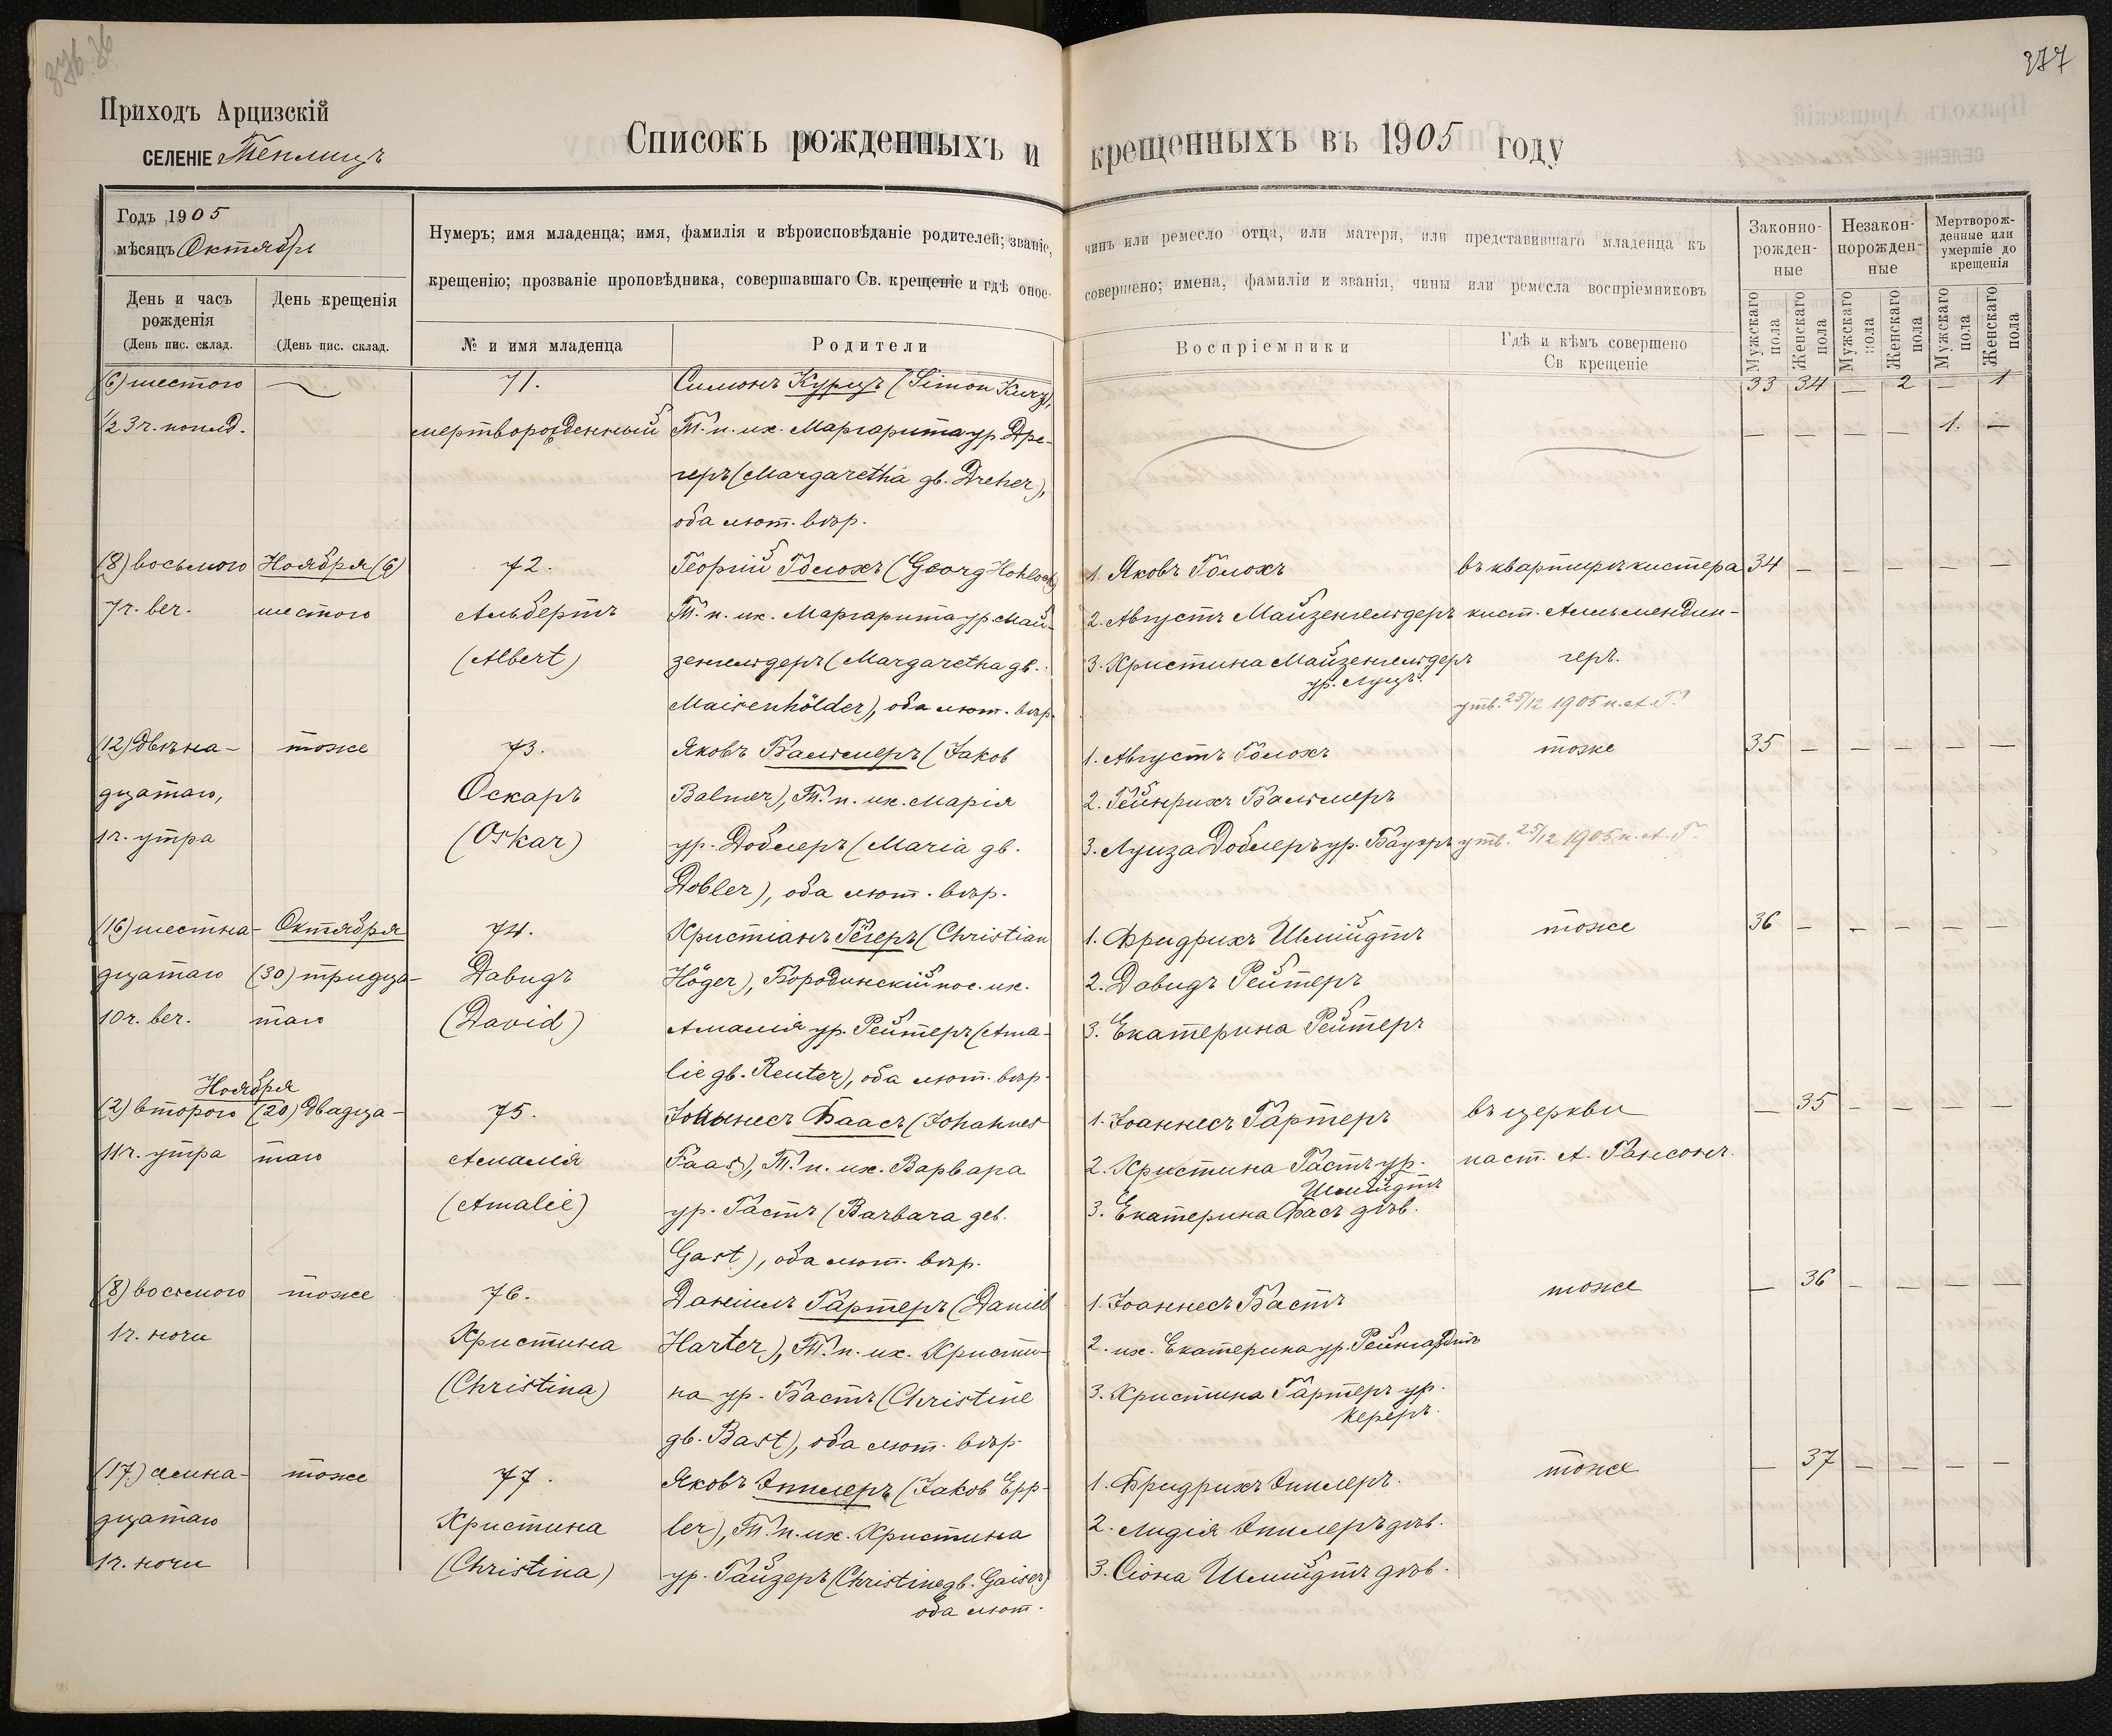 376. 36
377
Приходъ Арцизскій
СЕЛЕНІЕ Теплицъ
Списокъ рожденныхъ и крещенныхъ въ 1905 году
Годъ 1905
мѣсяцъ Октябрь
День и часъ рожденія
(День пис. склад.
День крещенія
(День пис. склад.
Нумеръ; имя младенца; имя, фамилія и вѣроисповѣданіе родителей; званіе, чинъ или ремесло отца, или матери, или представившаго младенца къ
крещенію; прозваніе проповѣдника, совершавшаго Св. крещеніе и гдѣ оное совершено; имена, фамиліи и званія, чины или ремесла воспріемниковъ
№ и имя младенца
Родители
Воспріемники
Гдѣ и кѣмъ совершено
Св крещеніе
Законно-рожден-ные
Незакон-норожден-ные
Мертворож-денные или умершіе до крещенія
Мужскаго пола
Женскаго пола
Мужскаго пола
Женскаго пола
Мужскаго пола
Женскаго пола
33 34 — 2 — 1
(6) шестого
½ 3 ч. попол.
71.
мертворожденный
Симонъ Курцъ (Simon Kurz),
Т. п. их. Маргарита ур. Дре-
геръ (Margaretha gb. Dreher),
оба лют. вѣр.
— — — — 1. —
(8) восьмого
7 ч. веч.
Ноября (6)
шестого
72.
Альбертъ
(Albert)
Георгій Голохъ (Georg Hohloch)
Т. п. их. Маргарита ур. Май-
зенгельдеръ (Margaretha gb.
Maisenhölder), оба лют. вѣр.
1. Яковъ Голохъ
2. Августъ Майзенгельдеръ
3. Христина Майзенгельдеръ
ур. Луцъ.
въ квартирѣ кистера
кист. Алльмендин-
геръ.
утв. 25/12 1905 п. А. Г.
34 — — — — —
(12) двѣна-
дцатаго,
1 ч. утра
тоже
73.
Оскаръ
(Oskar)
Яковъ Бальмеръ (Jakob
Balmer), Т. п. их. Марія
ур. Доблеръ (Maria gb.
Dobler), оба лют. вѣр.
1. Августъ Голохъ
2. Гейнрихъ Бальмеръ
3. Луиза Доблеръ ур. Бауеръ
тоже
утв. 25/12 1905 п. А. Г.
35 — — — — —
(16) шестна-
дцатаго
10 ч. веч.
Октября
(30) тридца-
таго
74.
Давидъ
(David)
Христіанъ Гегеръ (Christian
Höger), Бородинскій пос. их.
Амалія ур. Рейтеръ (Ama-
lie gb. Reuter), оба лют. вѣр.
1. Фридрихъ Шмиидтъ
2. Давидъ Рейтеръ
3. Екатерина Рейтеръ
тоже
36 — — — — —
Ноября
(2) второго
11 ч. утра
(20) двадца-
таго
75.
Амалія
(Amalie)
Іоаннесъ Фаасъ (Johannes
Faas), Т. п. их. Варвара
ур. Гастъ (Barbara geb.
Gast), оба лют. вѣр.
1. Іоаннесъ Гартеръ
2. Христина Гастъ ур.
Шмиидтъ
3. Екатерина Фасъ дѣв.
въ церкви
паст. А. Гансонъ.
— 35 — — — —
(8) восьмого
1 ч. ночи
тоже
76.
Христина
(Christina)
Даніилъ Гартеръ (Daniel
Harter), Т. п. их. Христи-
на ур. Бастъ (Christine
gb. Bast), оба лют. вѣр.
1. Іоаннесъ Бастъ
2. их. Екатерина ур. Рейнгардтъ
3. Христина Гартеръ ур.
Кереръ.
тоже
— 36 — — — —
(17) семна-
дцатаго
1 ч. ночи
тоже
77.
Христина
(Christina)
Яковъ Эпплеръ (Jakob Epp-
ler), Т. п. их. Христина
ур. Гайзеръ (Christine gb. Gaiser)
оба лют.
1. Фридрихъ Эпплеръ.
2. Лидія Эпплеръ дѣв.
3. Сіона Шмиидтъ дѣв.
тоже
— 37 — — — —